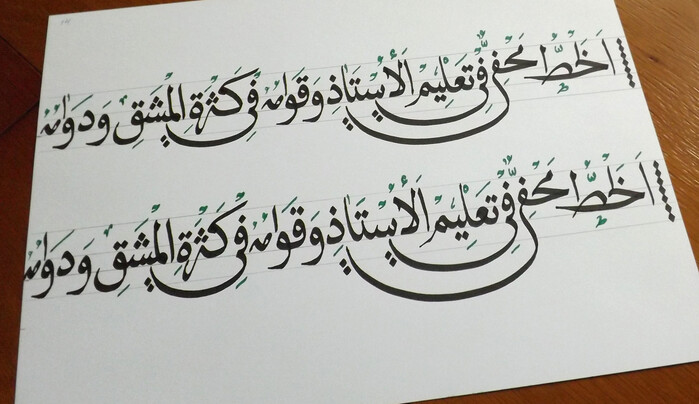 اَلْخَطُّ مَخْفِيٌّ فِي تَعْلِيمِ الْأُسْتَاذِ وَقَوَامُهُ فِي كَثْرَةِ الْمَشْقِ وَدَوَامُهُ
اَلْخَطُّ مَخْفِيٌّ فِي تَعْلِيمِ الْأُسْتَاذِ وَقَوَامُهُ فِي كَثْرَةِ الْمَشْقِ وَدَوَامُهُ